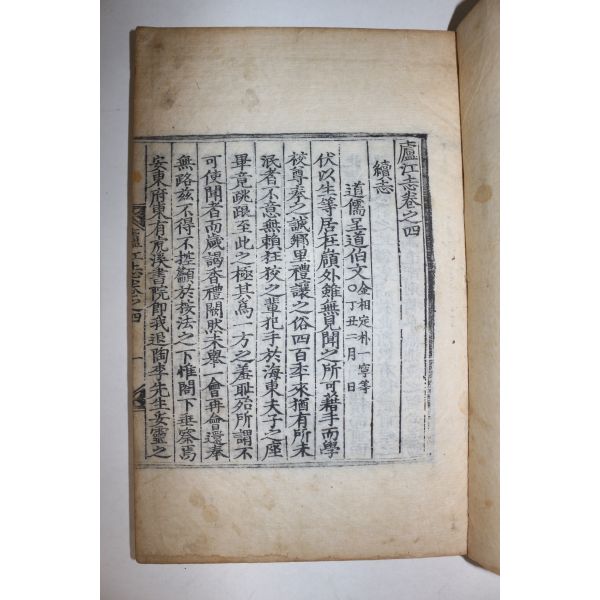 廬江志卷之四
續志
道儒呈道伯文 金相定朴一寧等 〇丁丑二月 日
伏以生等居在嶺外雖無見聞之所可藉手而學
校尊奉之誠鄉里禮讓之俗四百年來猶有所未
泯者不意無賴狂狡之輩犯手於海東夫子之座
畢竟跳踉至此之極其爲一方之羞恥殆所謂不
可使聞者而歲謁香禮闕然未舉一會再會邊奉
無路玆不得不控籲於按法之下惟閤下垂察焉
安東府東有虎溪書院卽我退陶李先生妥靈之
廬江志卷之四 一